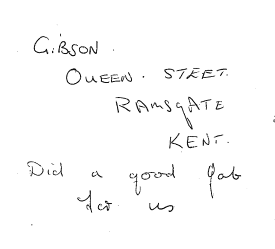 GIBSON.
QUEEN. STEET.
RAMSGATE
KENT.
Did a good job
for us